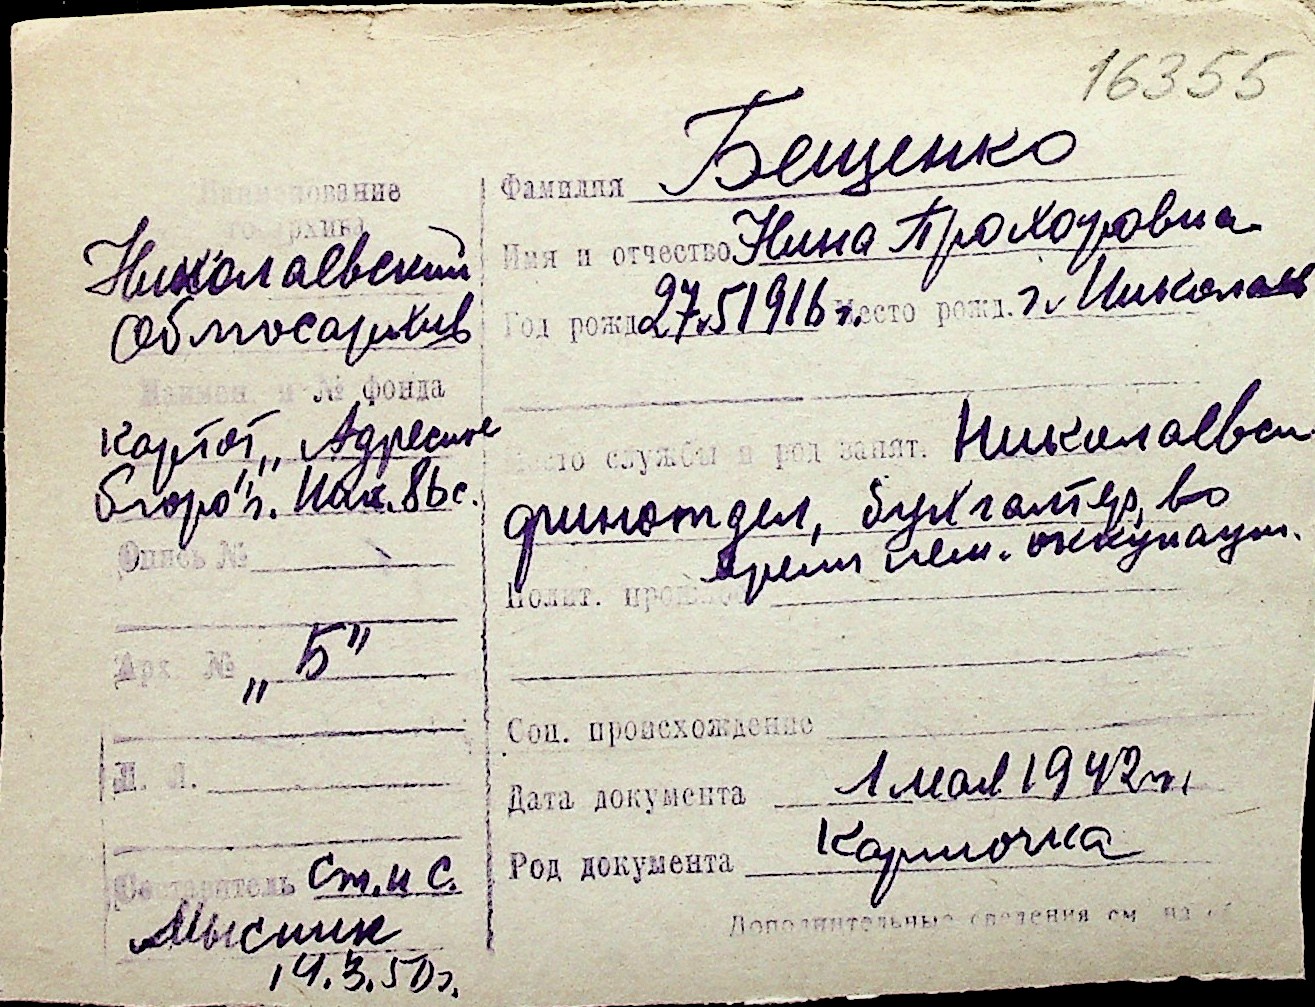 16355
Наименование
госархива
Николаевский
Облгосархив
Наимен. и № фонда
Картот. „Адресное
бюро" г. Ник. 86 с.
Опись №
Арх. № „Б"
Л. Л.
Составитель Ст. н с.
14.3.50 г.
Фамилия Бещенко
Имя и отчество Нина Прохоровна
Год рожд. 27.5 1916 г. Место рожд. г. Николаев
Место службы и род занят. Николаевск
финотдел, бухгалтер, во
время нем. оккупации.
Полит. прошлое
Соц. происхождение
Дата документа 1 мая 1942 г.
Род документа Карточка
Дополнительные сведения см. на об